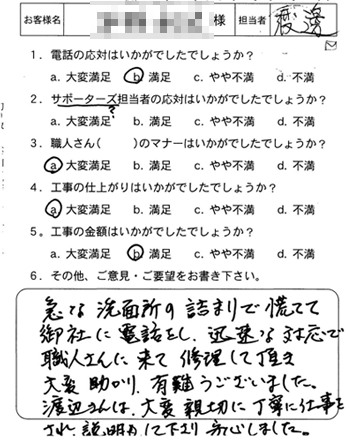 お客様名 様 担当者 渡邊
1．電話の応対はいかがでしたでしょうか？
a. 大変満足 b. 満足 c. やや不満 d. 不満
2．サポーターズ担当者の応対はいかがでしたでしょうか？
?
a. 大変満足 b. 満足 c. やや不満 d. 不満
3．職人さん(　　)のマナーはいかがでしたでしょうか？
a 大変満足 b. 満足 c. やや不満 d. 不満
4．工事の仕上がりはいかがでしたでしょうか？
a 大変満足 b. 満足 c. やや不満 d. 不満
5。工事の金額はいかがでしたでしょうか？
a. 大変満足 b 満足 c. やや不満 d. 不満
6．その他、ご意見・ご要望をお書き下さい。
急な洗面所の詰まりで慌てて
御社に電話をし、迅速な対応で
職人さんに来て修理して頂き
大変助かり、有難うございました。
渡辺さんは、大変親切に丁寧に仕事を
され、説明して下さり安心しました。